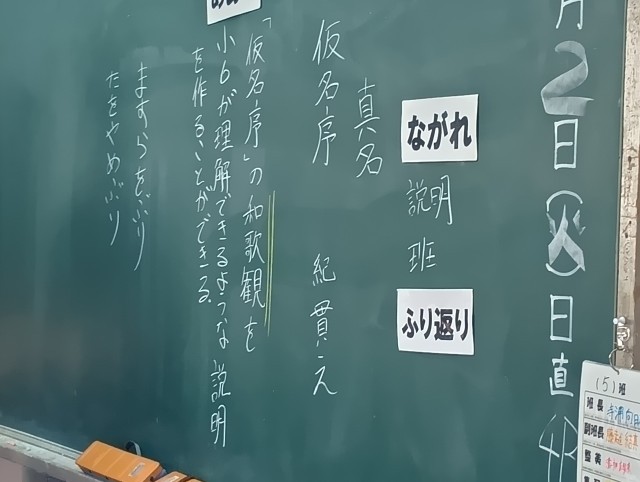 月2日(火)日直
ながれ
説明
班
ふり返り
真名
仮名序 紀貫え
「仮名序」の和歌観を
小6が理解できるような説明
を作ることができる
ますらをぶり
たをやめぶり
(5)班
班長
副班長